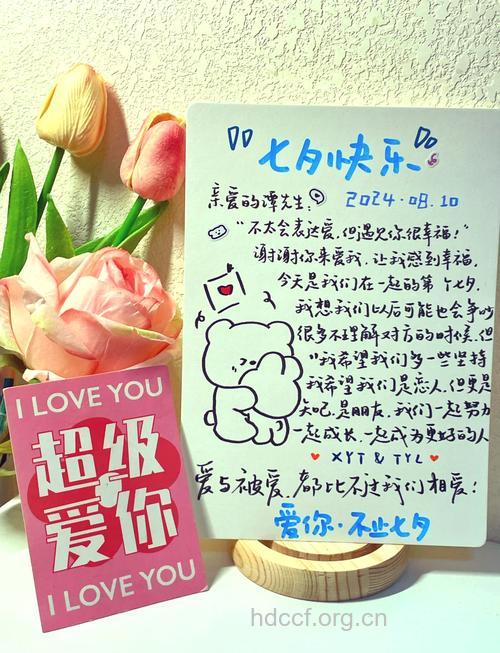 七夕快乐
亲爱的谭先生：
2024.08.10
"不太会表达爱，但遇见你很幸福！"
谢谢你来爱我，让我感到幸福，
今天是我们在一起的第个七夕.
我想我们以后可能也会争吵
很多不理解对方的时候，但
"我希望我们多一些坚持
我希望我们是恋人，但更是
是朋友，我们一起努力
一起成长，一起成为更好的人
XYT & TYL
爱与被爱，都比不过我们相爱！
爱你·不止七夕
I LOVE YOU
超级
爱你
I LOVE YOU
hdccf.org.cn